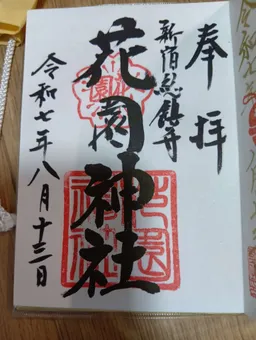 奉拝
新宿総鎮守
花園神社
令和七年八月十三日